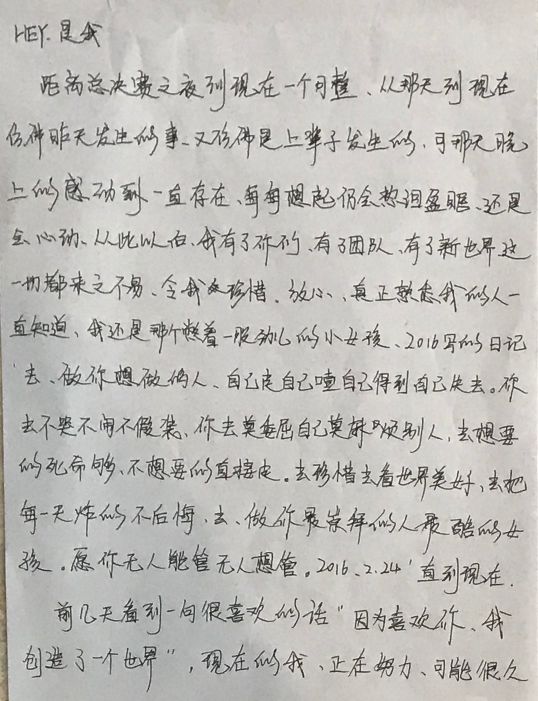 HEY. 是我
距离总决赛之夜到现在一个月整、从那天到现在
仿佛昨天发生的事、又仿佛是上辈子发生的、可那天晚
上的感动到一直存在、每每想起仍会热泪盈眶、还是
会心动、从此以后、我有了你们、有了团队、有了新世界这
一切都来之不易、令我珍惜、放心、真正熟悉我的人一
直知道、我还是那个憋着一股劲儿的小女孩、2016写的日记
'去、做你想做的人、自己走自己嗑自己得到自己失去。你
去不哭不闹不假装、你去莫委屈自己莫麻烦别人、去想要
的死命够、不想要的直接走。去珍惜去看世界美好、去把
每一天炸的不后悔、去、做你最崇拜的人最酷的女
孩。愿你无人能管无人想管。2016、2.24' 直到现在.
前几天看到一句很喜欢的话"因为喜欢你、我
创造了一个世界", 现在的我、正在努力、可能很久